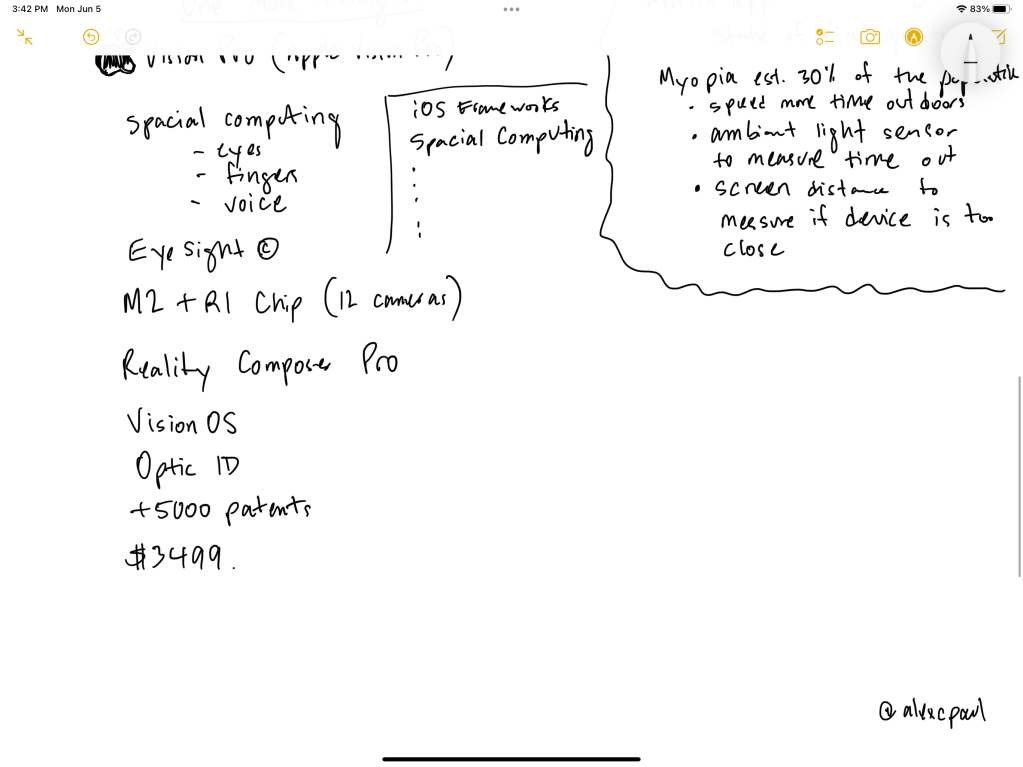 3:42 PM Mon Jun 5
83%
One more thing
health app
state of
Vision Pro (Apple Vision Pro)
spacial computing
- eyes
- fingers
- voice
Eye Sight ©
M2 + R1 Chip (12 cameras)
Reality Composer Pro
Vision OS
Optic ID
+5000 patents
$3499.
iOS Frameworks
Spacial Computing
Myopia est. 30% of the
• spend more time outdoors
• ambiant light sensor
to measure time out
• screen distance to
measure if device is too
close
@alexcpaul